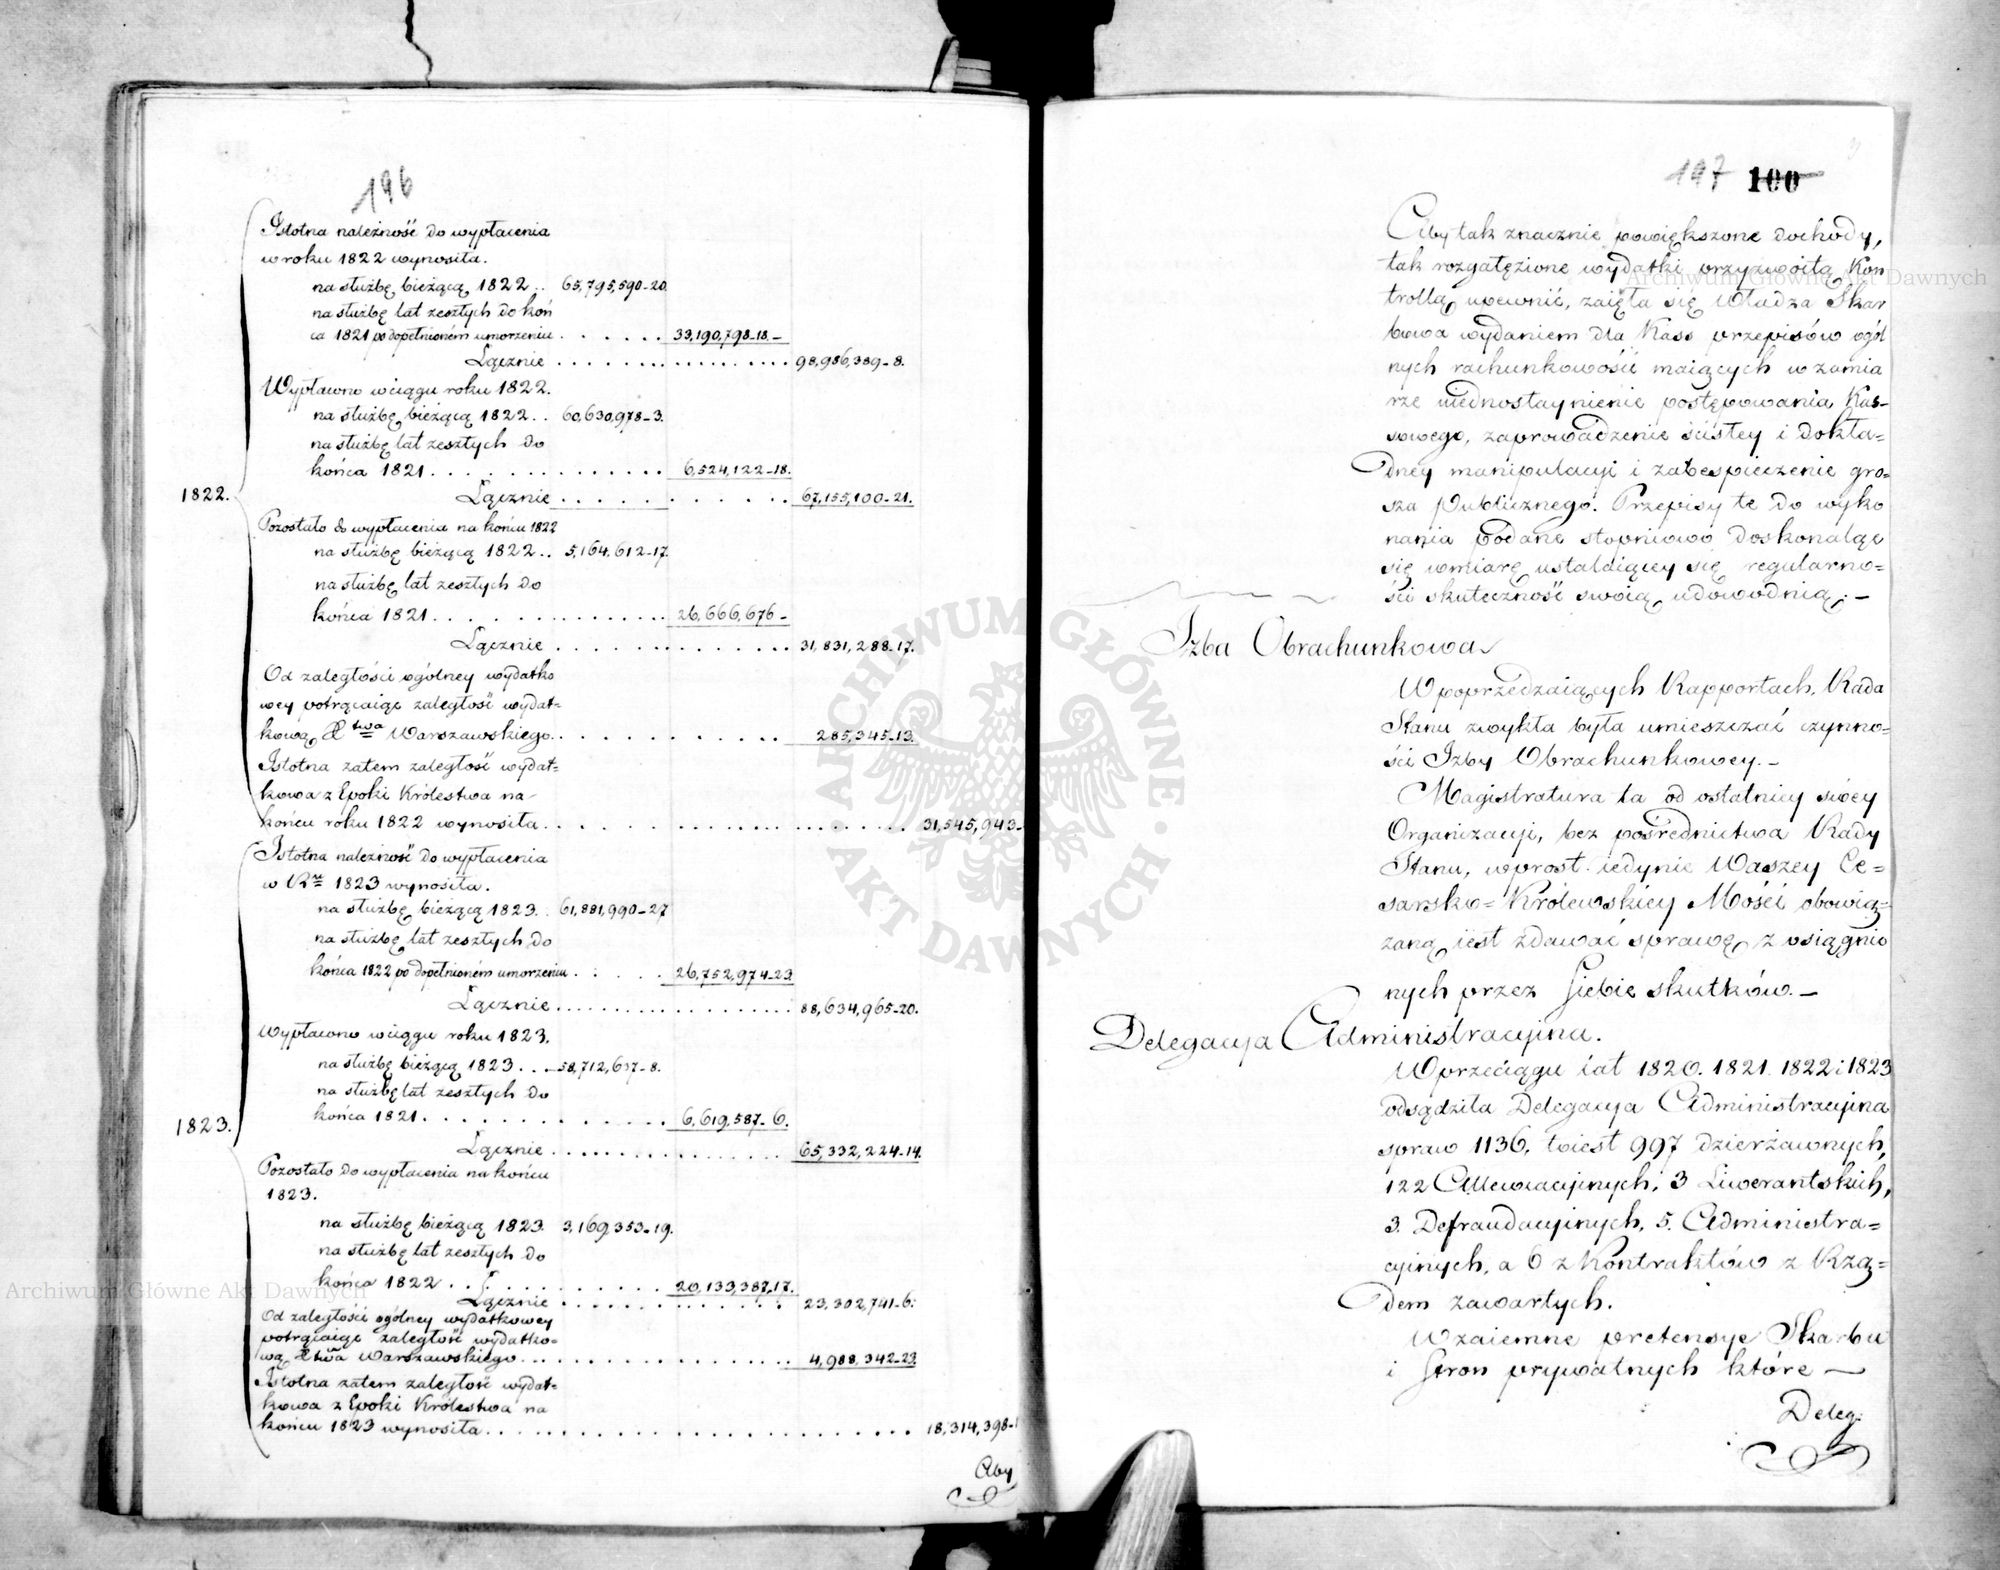 196
Istotna należność do wypłacenia
w roku 1822 wynosiła.
na służbę bieżącą 1822 .. 65,795,590-20.
na służbę lat zeszłych do koń
ca 1821 po dopełnioném umorzeniu . . . . . . 33,190,798-18.-
Łącznie . . . . . . . . . . . . . . 98,986,389-8.
Wypłacono w ciągu roku 1822.
na służbę bieżącą 1822 .. 60,630,978-3.
na służbę lat zeszłych do
końca 1821 . . . . . . . . . . . . . 6,524,122-18.
Łącznie . . . . . . . . . . 67,155,100-21.
1822.
Pozostało do wypłacenia na końcu 1822
na służbę bieżącą 1822 .. 5,164,612-17.
na służbę lat zeszłych do
końca 1821 . . . . . . . . . . . . . 26,666,676-
Łącznie . . . . . . . . . . . 31,831,288-17.
Od zaległości ogólney wydatko
wey potrącaiąc zaległość wydat=
kową Xtwa Warszawskiego . . . . . . . . . . . 285,345-13.
Istotna zatem zaległość wydat=
kowa z Epoki Królestwa na
końcu roku 1822 wynosiła . . . . . . . . . . . . . . . . 31,545,943-
Istotna należność do wypłacenia
w Ru 1823 wynosiła.
na służbę bieżącą 1823 . 61,881,990-27
na służbę lat zeszłych do
końca 1822 po dopełnioném umorzeniu . . . . . 26,752,974-23
Łącznie . . . . . . . . . . . . . . . 88,634,965-20.
Wypłacono w ciągu roku 1823.
na służbę bieżącą 1823 . . . 58,712,637-8.
na służbę lat zeszłych do
końca 1821 . . . . . . . . . . . . . 6,619,587-6.
1823.
Łącznie . . . . . . . . . . . . . 65,332,224-14.
Pozostało do wypłacenia na końcu
1823.
na służbę bieżącą 1823. 3,169,353-19.
na służbę lat zeszłych do
końca 1822 . . . . . . . . . . . . . 20,133,387,17.
Łącznie . . . . . . . . . . . . 23,302,741-6.
Od zaległości ogólney wydatkowey
potrącaiąc zaległość wydatko=
wą Xtwa Warszawskiego . . . . . . . . . . . . . . . 4,988,342-23
Istotna zatem zaległość wydat=
kowa z Epoki Królestwa na
końcu 1823 wynosiła . . . . . . . . . . . . . . . . . . . . . . 18,314,398-
Aby
197 100
Aby tak znacznie powiększone dochody,
tak rozgałęzione wydatki przyzwoitą Kon
trollą upewnić, zaięła się Władza Skar
bowa wydaniem dla Kass przepisów ogól
nych rachunkowości maiących w zamia
rze uiednostaynienie postępowania Kas-
sowego, zaprowadzenie ścisłey i dokła=
dney manipulacyi i zabespieczenie gro=
sza Publicznego. Przepisy te do wyko
nania podane stopniowo doskonaląc
się w miarę ustalaiącey się regularno=
ści skuteczność swoią udowodnią. -
Izba Obrachunkowa
W poprzedzaiących Rapportach, Rada
Stanu zwykła była umieszczać czynno=
ści Izby Obrachunkowey. -
Magistratura ta od ostatniey swéy
Organizacyi, bez pośrednictwa Rady
Stanu, wprost iedynie Waszey Ce=
sarsko=Królewskiey Mości obowią=
zaną iest zdawać sprawę z osiągnio
nych przez siebie skutków. -
Delegacya Administracyina.
W przeciągu lat 1820. 1821. 1822 i 1823
odsądziła Delegacya Administracyina
spraw 1136, to iest 997 dzierżawnych,
122 Allewiacyinych, 3 Liwerantskich,
3. Defraudacyinych, 5. Administra=
cyinych, a 6 z Kontraktów z Rzą=
dem zawartych.
Wzaiemne pretensye Skarbu
i stron prywatnych które -
Deleg:
ARCHIWUM GŁÓWNE
AKT DAWNYCH
Archiwum Główne Akt Dawnych
Archiwum Główne Akt Dawnych